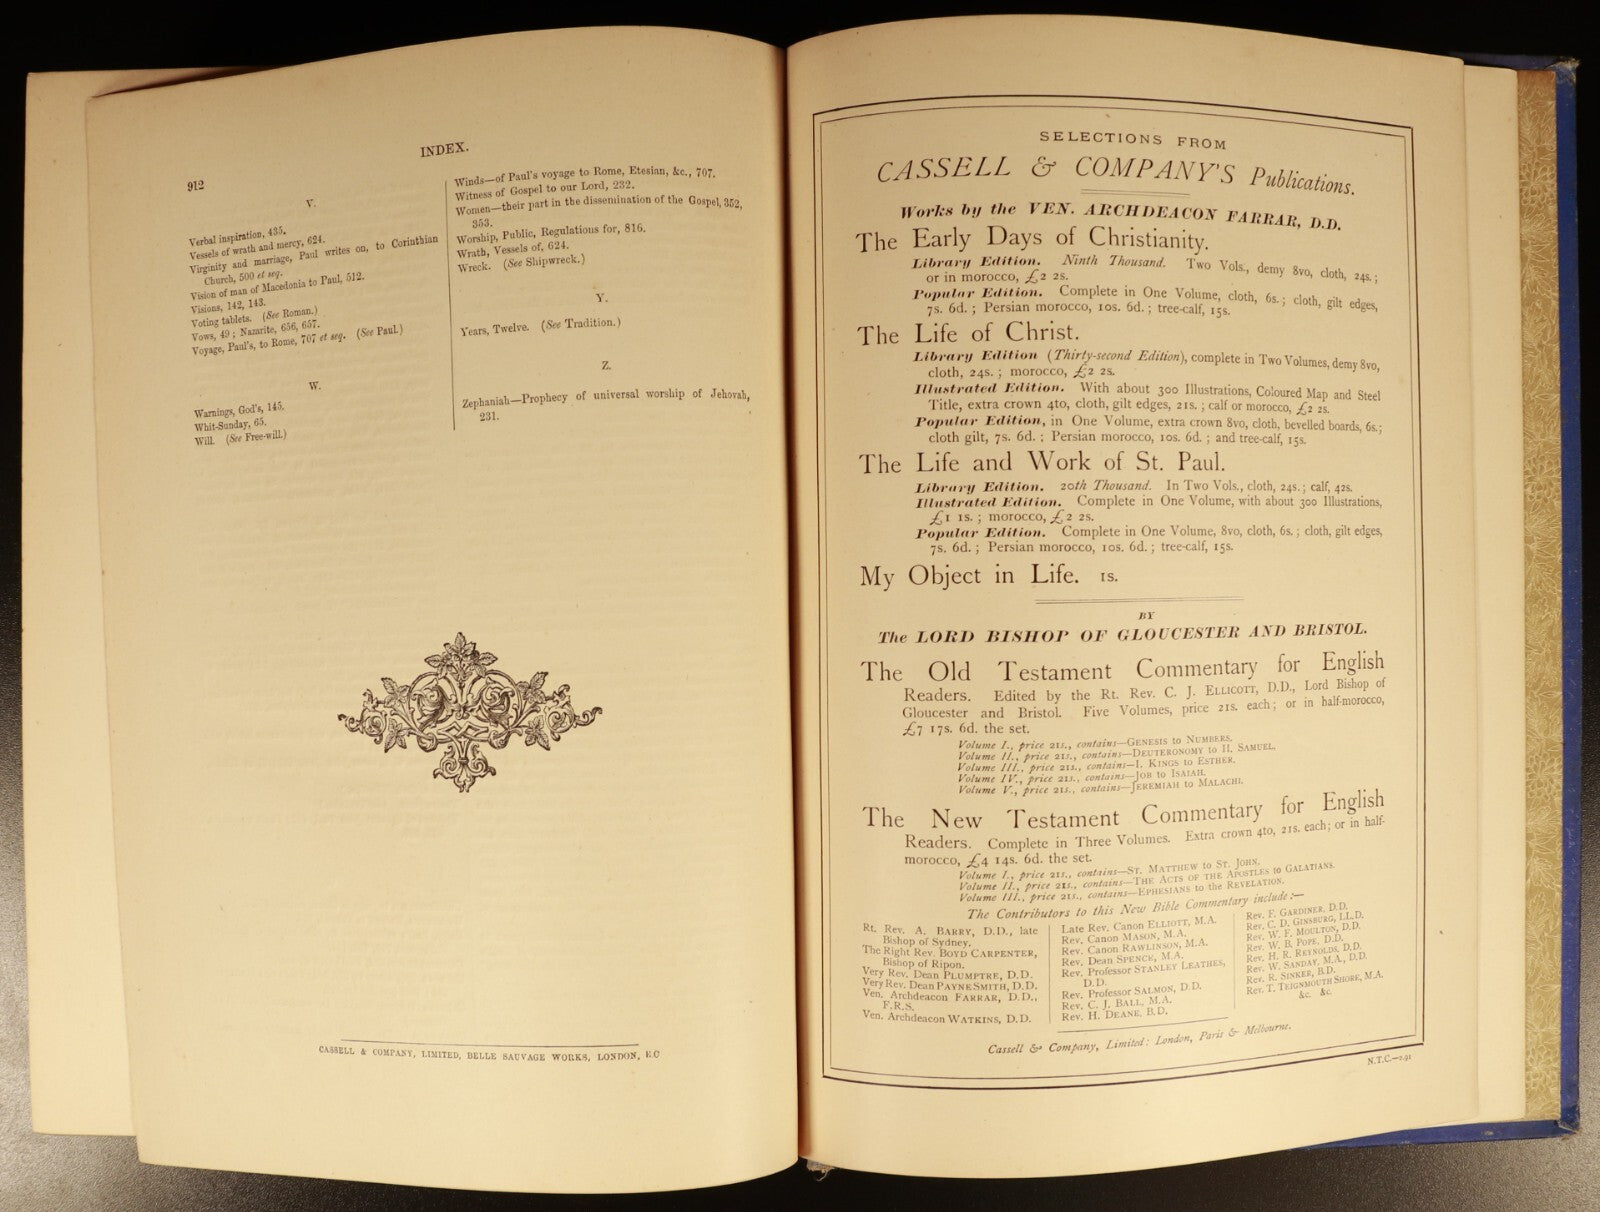 INDEX.
912
V.
Verbal inspiration, 435.
Vessels of wrath and mercy, 624.
Virginity and marriage, Paul writes on, to Corinthian
Church, 500 et seq.
Vision of man of Macedonia to Paul, 512.
Visions, 142, 143.
Voting tablets. (See Roman.)
Vows, 49; Nazarite, 656, 657.
Voyage, Paul's, to Rome, 707 et seq. (See Paul.)
W.
Warnings, God's, 145.
Whit-Sunday, 65.
Will. (See Free-will.)
Winds—of Paul's voyage to Rome, Etesian, &c., 707.
Witness of Gospel to our Lord, 232.
Women—their part in the dissemination of the Gospel, 352,
353.
Worship, Public, Regulations for, 816.
Wrath, Vessels of, 624.
Wreck. (See Shipwreck.)
Y.
Years, Twelve. (See Tradition.)
Z.
Zephaniah—Prophecy of universal worship of Jehovah,
231.
CASSELL & COMPANY, LIMITED, BELLE SAUVAGE WORKS, LONDON, E.C
SELECTIONS FROM
CASSELL & COMPANY'S Publications.
Works by the VEN. ARCHDEACON FARRAR, D.D.
The Early Days of Christianity.
Library Edition. Ninth Thousand. Two Vols., demy 8vo, cloth, 24s.;
or in morocco, £2 2s.
Popular Edition. Complete in One Volume, cloth, 6s.; cloth, gilt edges,
7s. 6d.; Persian morocco, 10s. 6d.; tree-calf, 15s.
The Life of Christ.
Library Edition (Thirty-second Edition), complete in Two Volumes, demy 8vo,
cloth, 24s.; morocco, £2 2s.
Illustrated Edition. With about 300 Illustrations, Coloured Map and Steel
Title, extra crown 4to, cloth, gilt edges, 21s.; calf or morocco, £2 2s.
Popular Edition, in One Volume, extra crown 8vo, cloth, bevelled boards, 6s.;
cloth gilt, 7s. 6d.; Persian morocco, 10s. 6d.; and tree-calf, 15s.
The Life and Work of St. Paul.
Library Edition. 20th Thousand. In Two Vols., cloth, 24s.; calf, 42s.
Illustrated Edition. Complete in One Volume, with about 300 Illustrations,
£1 1s.; morocco, £2 2s.
Popular Edition. Complete in One Volume, 8vo, cloth, 6s.; cloth, gilt edges,
7s. 6d.; Persian morocco, 10s. 6d.; tree-calf, 15s.
My Object in Life. 1s.
BY
The LORD BISHOP OF GLOUCESTER AND BRISTOL.
The Old Testament Commentary for English
Readers. Edited by the Rt. Rev. C. J. ELLICOTT, D.D., Lord Bishop of
Gloucester and Bristol. Five Volumes, price 21s. each; or in half-morocco,
£7 17s. 6d. the set.
Volume I., price 21s., contains—GENESIS to NUMBERS.
Volume II., price 21s., contains—DEUTERONOMY to II. SAMUEL.
Volume III., price 21s., contains—I. KINGS to ESTHER.
Volume IV., price 21s., contains—JOB to ISAIAH.
Volume V., price 21s., contains—JEREMIAH to MALACHI.
The New Testament Commentary for English
Readers. Complete in Three Volumes. Extra crown 4to, 21s. each; or in half-
morocco, £4 14s. 6d. the set.
Volume I., price 21s., contains—ST. MATTHEW to ST. JOHN.
Volume II., price 21s., contains—THE ACTS OF THE APOSTLES to GALATIANS.
Volume III., price 21s., contains—EPHESIANS to the REVELATION.
The Contributors to this New Bible Commentary include:—
Rt. Rev. A. BARRY, D.D., late
Bishop of Sydney.
The Right Rev. BOYD CARPENTER,
Bishop of Ripon.
Very Rev. Dean PLUMPTRE, D.D.
Very Rev. Dean PAYNE SMITH, D.D.
Ven. Archdeacon FARRAR, D.D.,
F.R.S.
Ven. Archdeacon WATKINS, D.D.
Late Rev. Canon ELLIOTT, M.A.
Rev. Canon MASON, M.A.
Rev. Canon RAWLINSON, M.A.
Rev. Dean SPENCE, M.A.
Rev. Professor STANLEY LEATHES,
D.D.
Rev. Professor SALMON, D.D.
Rev. C. J. BALL, M.A.
Rev. H. DEANE, B.D.
Rev. F. GARDINER, D.D.
Rev. C. D. GINSBURG, LL.D.
Rev. W. F. MOULTON, D.D.
Rev. W. B. POPE, D.D.
Rev. H. R. REYNOLDS, D.D.
Rev. W. SANDAY, M.A., D.D.
Rev. R. SINKER, B.D.
Rev. T. TEIGNMOUTH SHORE, M.A.
&c. &c.
Cassell & Company, Limited: London, Paris & Melbourne.
N.T.C.—2.91